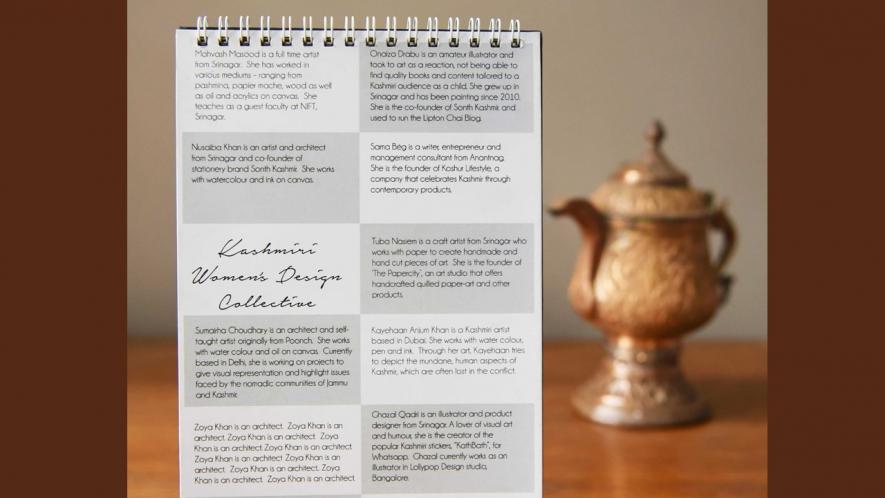 Mahvash Masood is a full time artist
from Srinagar. She has worked in
various mediums – ranging from
pashmina, papier mache, wood as well
as oil and acrylics on canvas. She
teaches as a guest faculty at NIFT,
Srinagar.
Onaiza Drabu is an amateur illustrator and
took to art as a reaction, not being able to
find quality books and content tailored to a
Kashmiri audience as a child. She grew up in
Srinagar and has been painting since 2010.
She is the co-founder of Sonth Kashmir and
used to run the Lipton Chai Blog.
Nusaiba Khan is an artist and architect
from Srinagar and co-founder of
stationery brand Sonth Kashmir. She works
with watercolour and ink on canvas.
Sama Bég is a writer, entrepreneur and
management consultant from Anantnag.
She is the founder of Koshur Lifestyle, a
company that celebrates Kashmir through
contemporary products.
Kashmiri
Women's Design
Collective
Tuba Nasiem is a craft artist from Srinagar who
works with paper to create handmade and
hand cut pieces of art. She is the founder of
'The Papercity', an art studio that offers
handcrafted quilled paper-art and other
products.
Sumairha Choudhary is an architect and self-
taught artist originally from Poonch. She works
with water colour and oil on canvas. Currently
based in Delhi, she is working on projects to
give visual representation and highlight issues
faced by the nomadic communities of Jammu
and Kashmir.
Kayehaan Anjum Khan is a Kashmiri artist
based in Dubai. She works with water colour,
pen and ink. Through her art, Kayehaan tries
to depict the mundane, human aspects of
Kashmir, which are often lost in the conflict.
Zoya Khan is an architect. Zoya Khan is an
architect. Zoya Khan is an architect. Zoya
Khan is an architect. Zoya Khan is an
architect. Zoya Khan is an architect. Zoya
Khan is an architect. Zoya Khan is an
architect. Zoya Khan is an architect. Zoya
Khan is an architect. Zoya Khan is an architect.
Ghazal Qadri is an illustrator and product
designer from Srinagar. A lover of visual art
and humour, she is the creator of the
popular Kashmiri stickers, "KathBath", for
Whatsapp. Ghazal currently works as an
illustrator in Lollypop Design studio,
Bangalore.